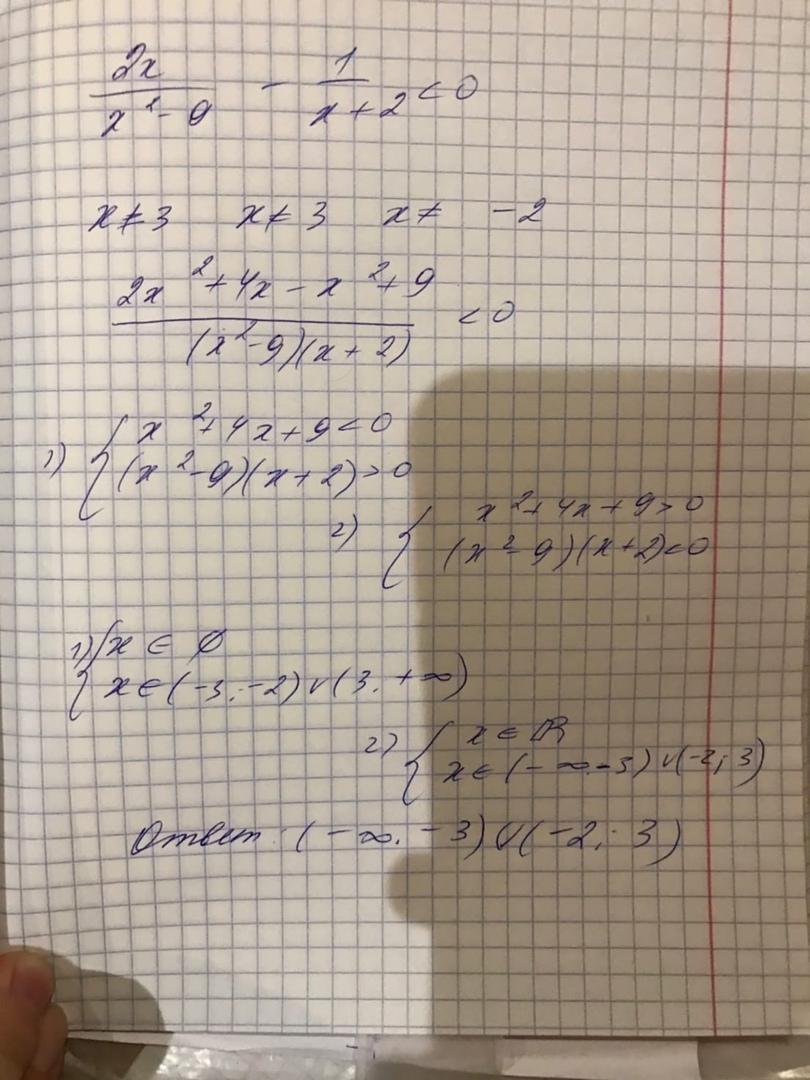 2x/(x²-9) - 1/(x+2) < 0
x≠3 x≠3 x≠ -2
(2x²+4x-x²+9)/((x²-9)(x+2)) < 0
1) { x²+4x+9<0
(x²-9)(x+2)>0
2) { x²+4x+9>0
(x²-9)(x+2)<0
1) { x ∈ ∅
x∈(-3;-2)∪(3.+∞)
2) { x∈ℝ
x∈(-∞.-3)∪(-2;3)
Ответ: (-∞.-3)∪(-2;3)